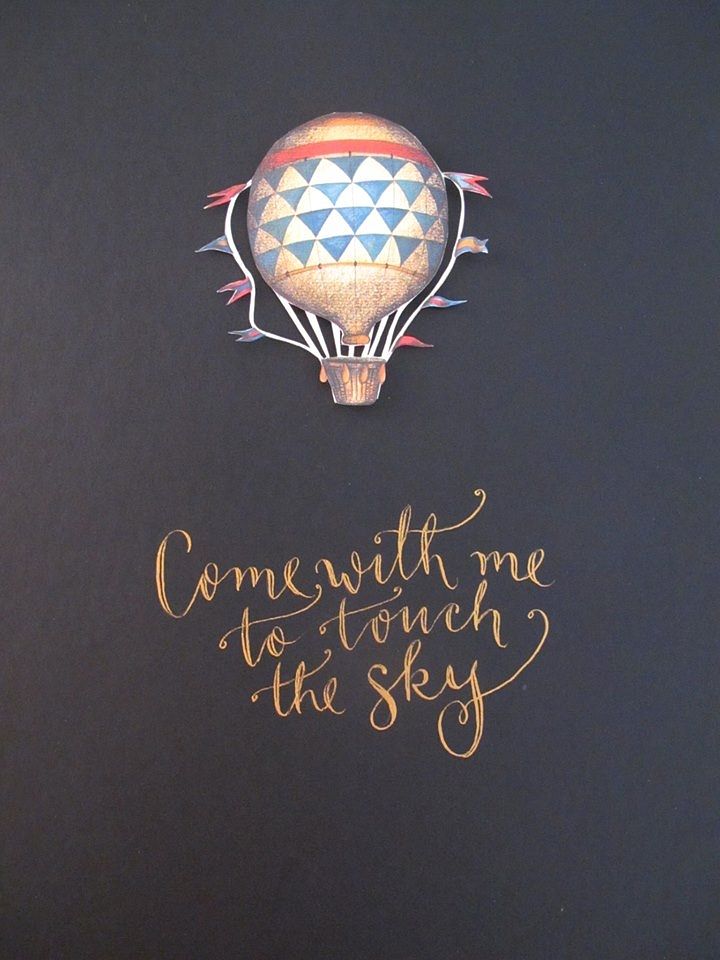 Come with me
to touch
the sky